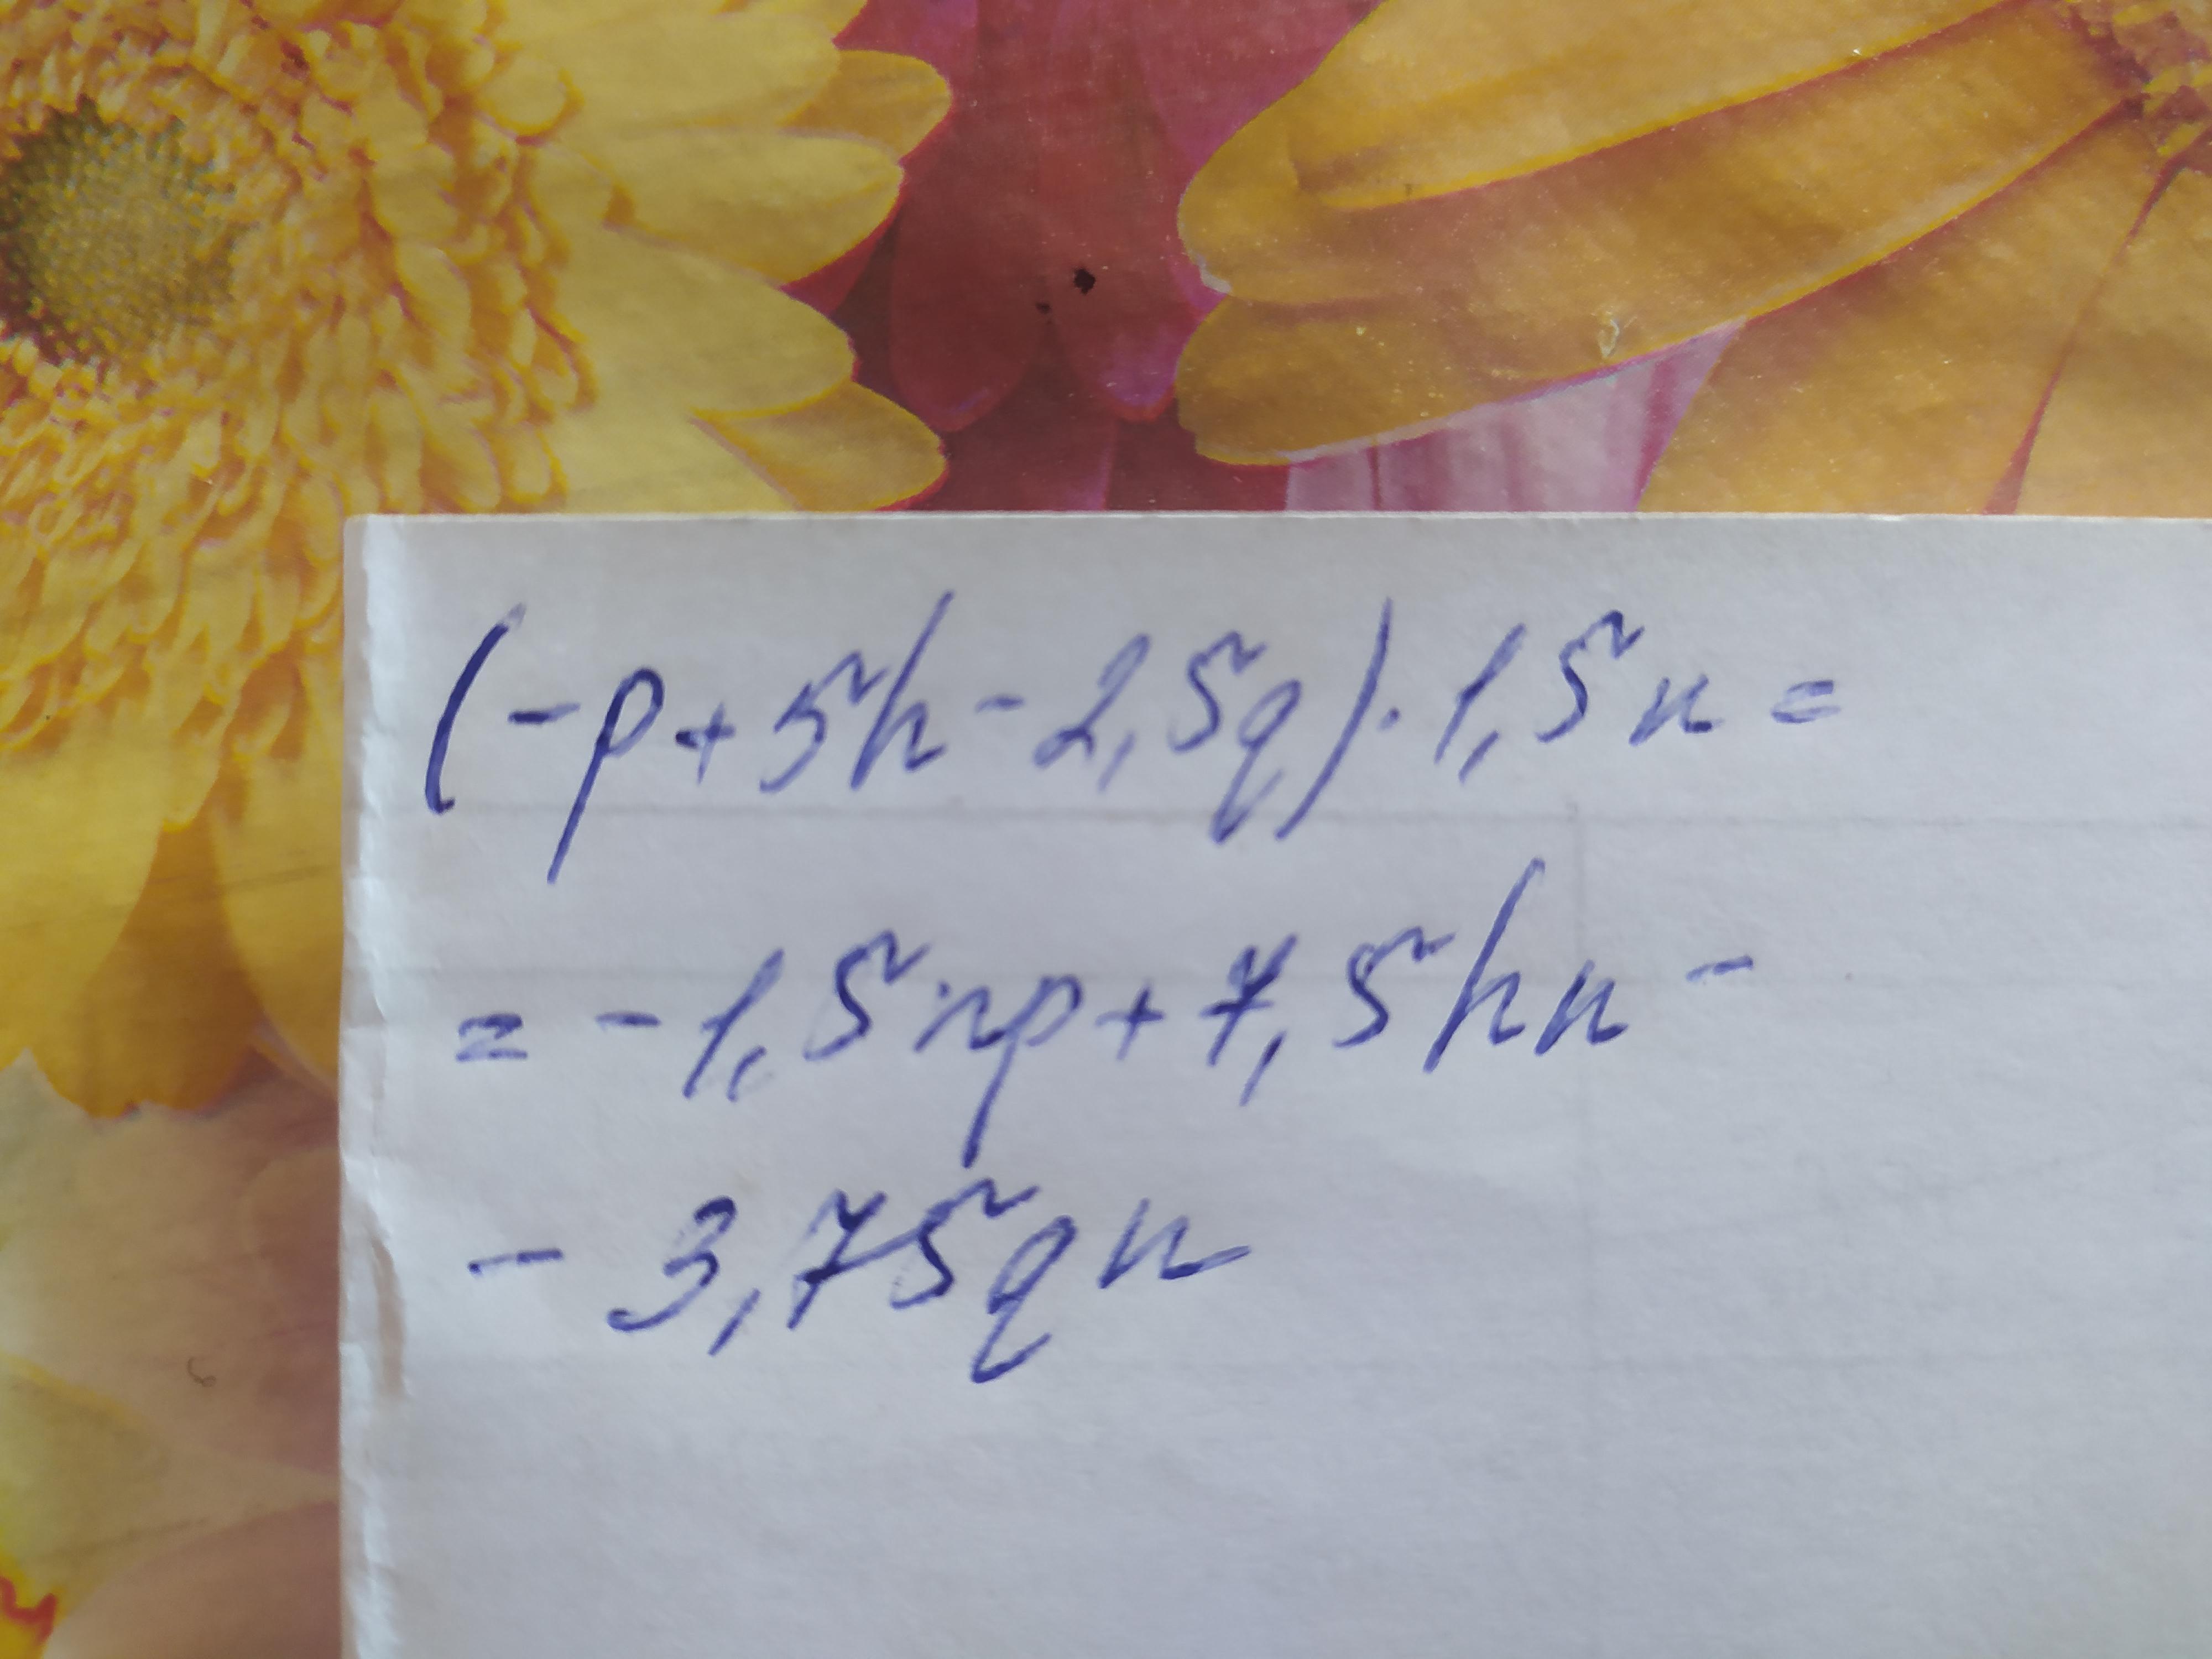 (-p+5h-2,5q)·1,5n=
=-1,5np+7,5hn-
-3,75qn